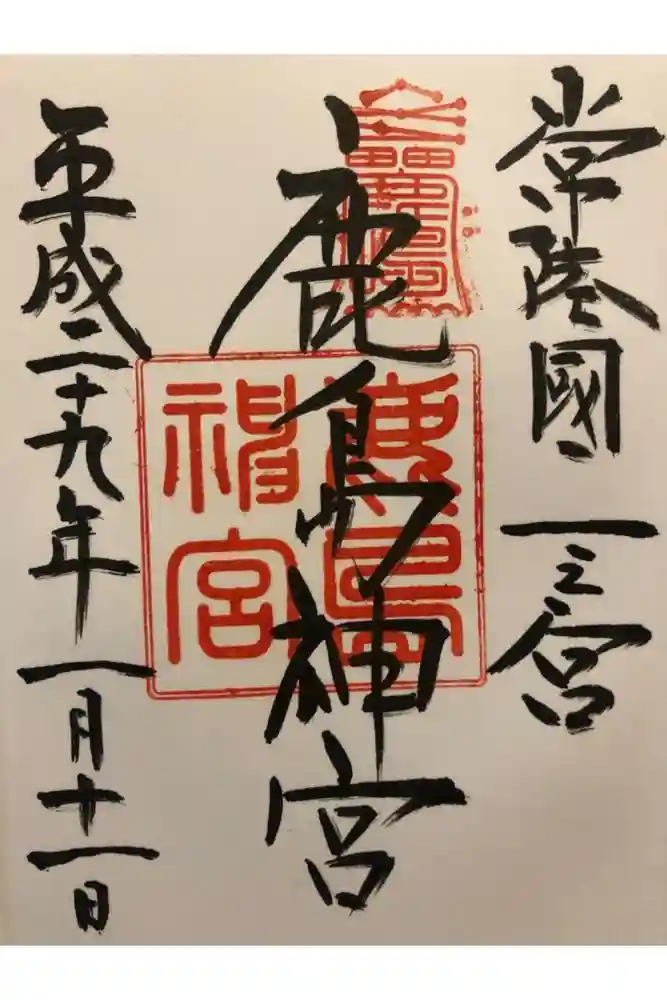 常陸國一之宮
鹿島神宮
平成二十九年一月十一日
鹿島神宮